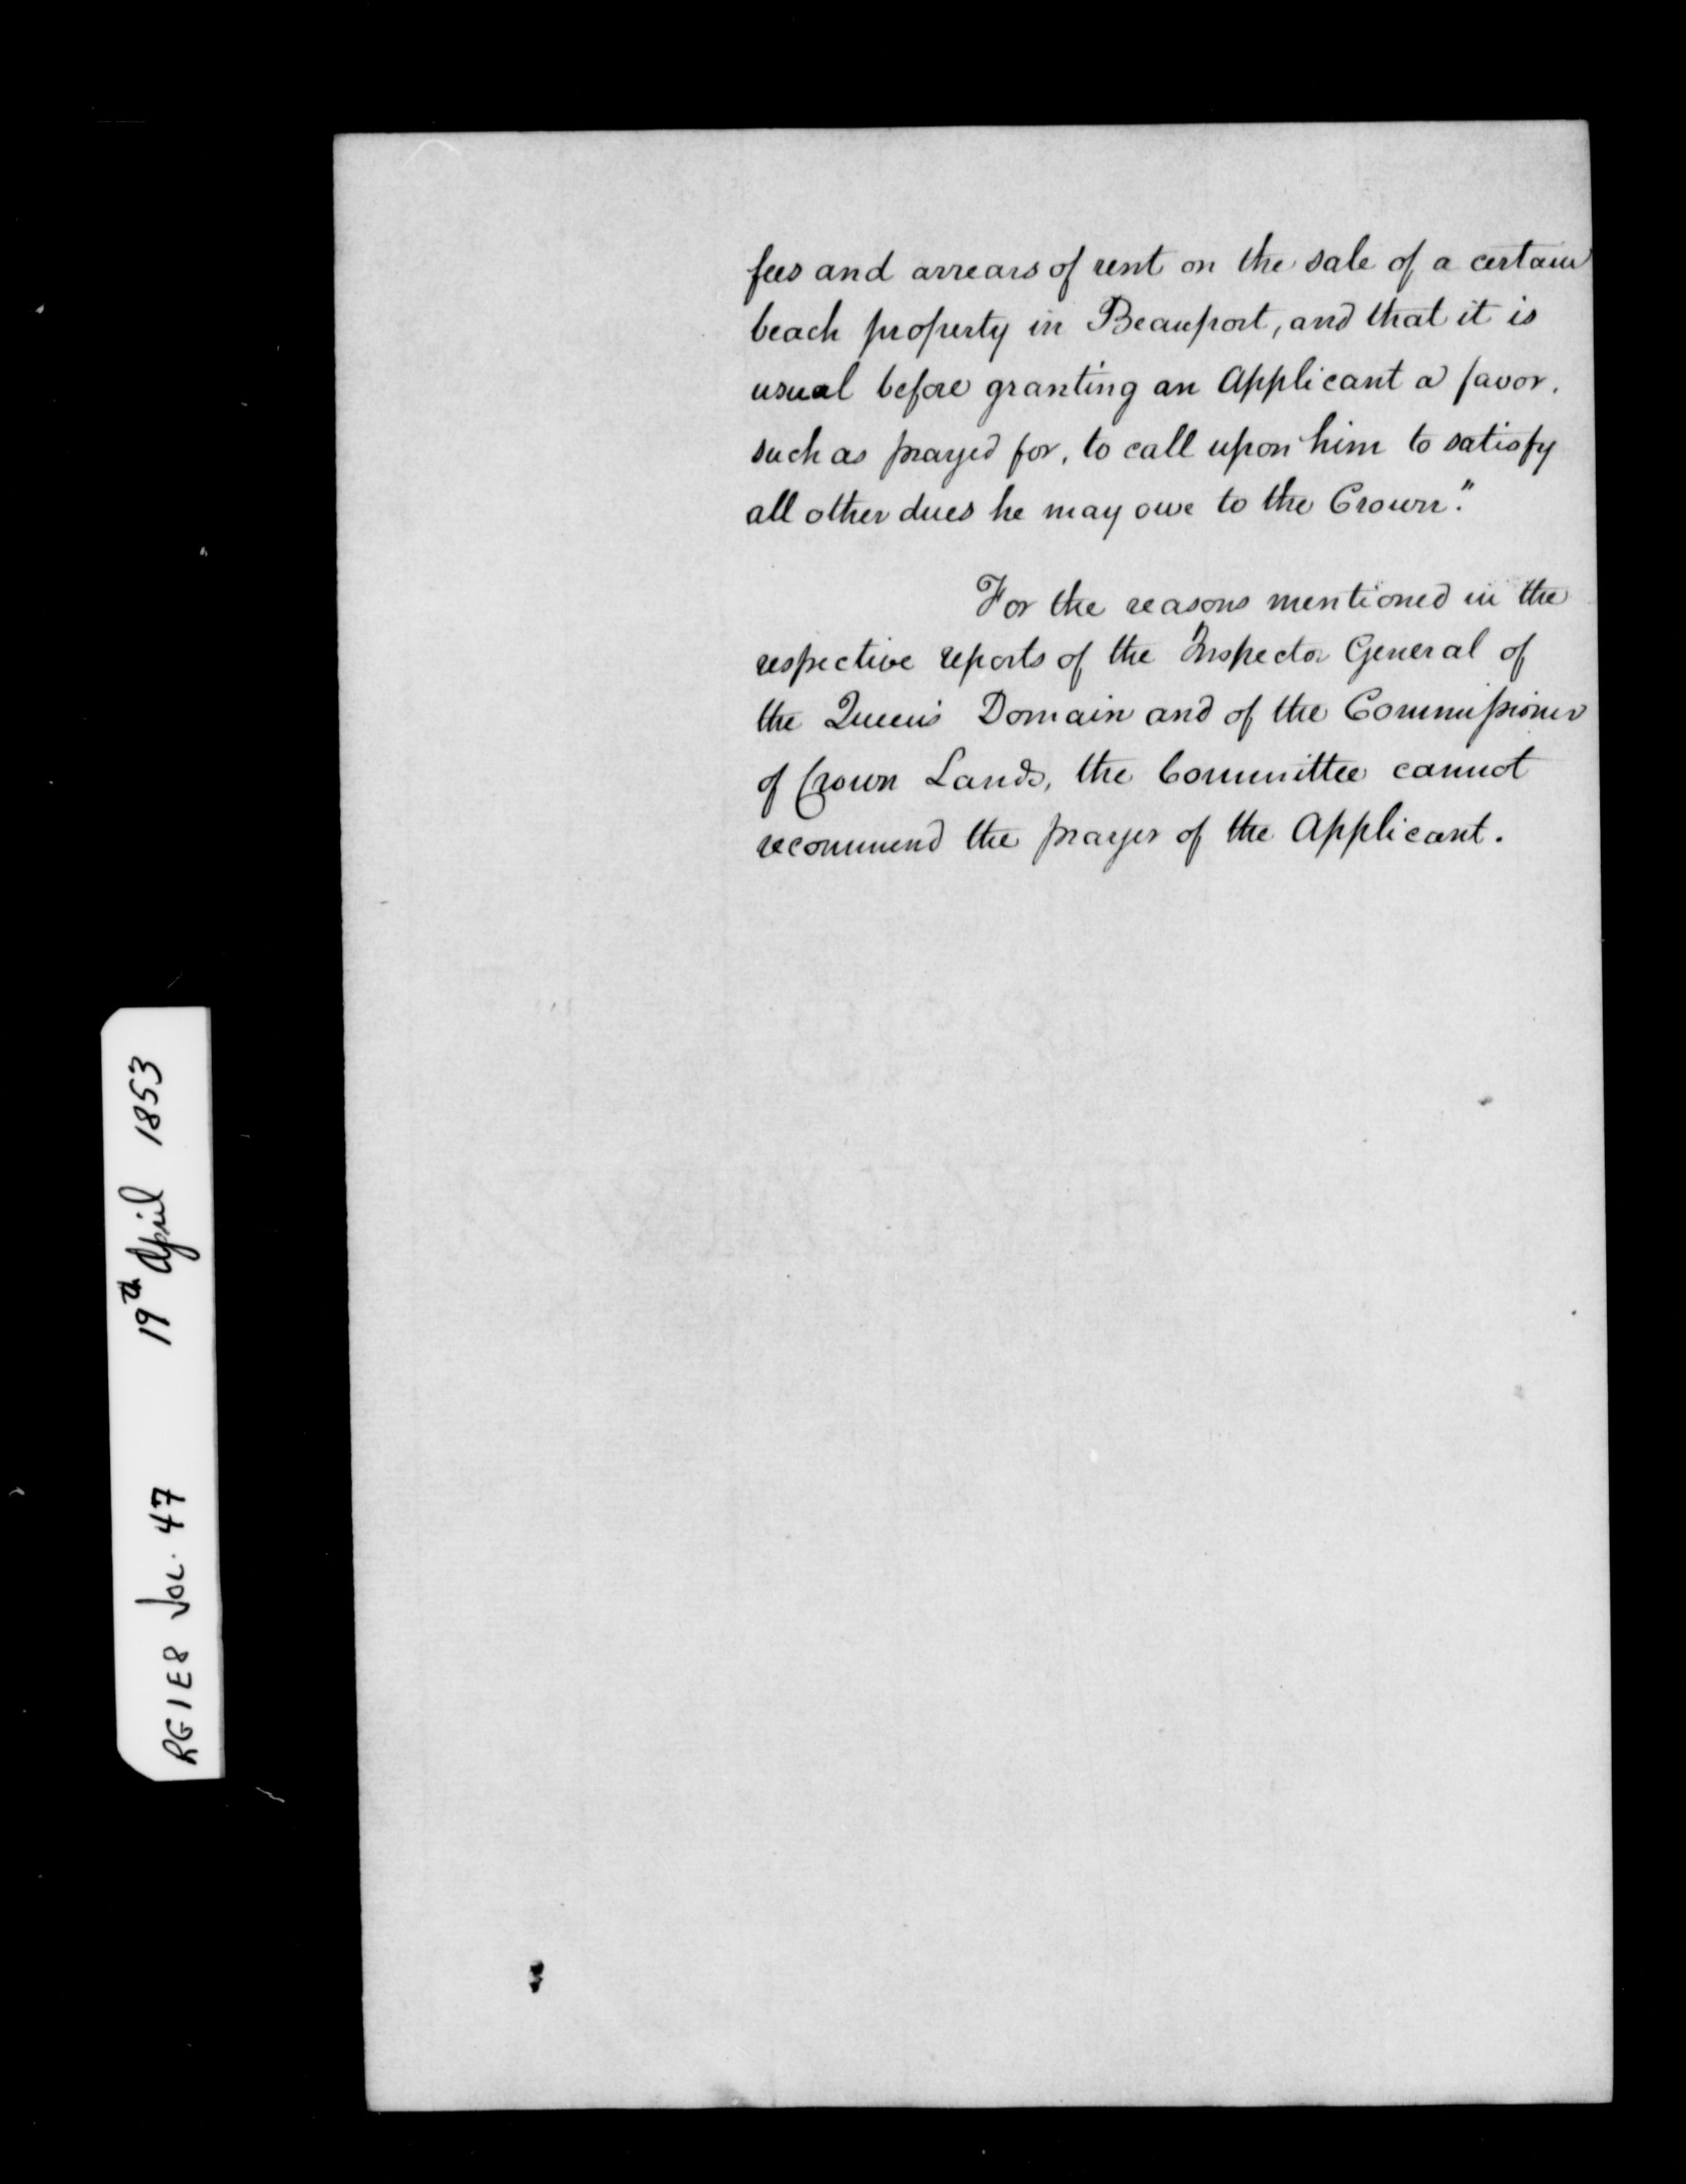 fees and arrears of rent on the sale of a certain
beach property in Beauport, and that it is
usual before granting an Applicant a favor.
such as prayed for, to call upon him to satisfy
all other dues he may owe to the Crown."
For the reasons mentioned in the
respective reports of the Inspector General of
the Queen's Domain and of the Commissioner
of Crown Lands, the Committee cannot
recommend the prayer of the Applicant.
RG1E8 Vol. 47 19th April 1853